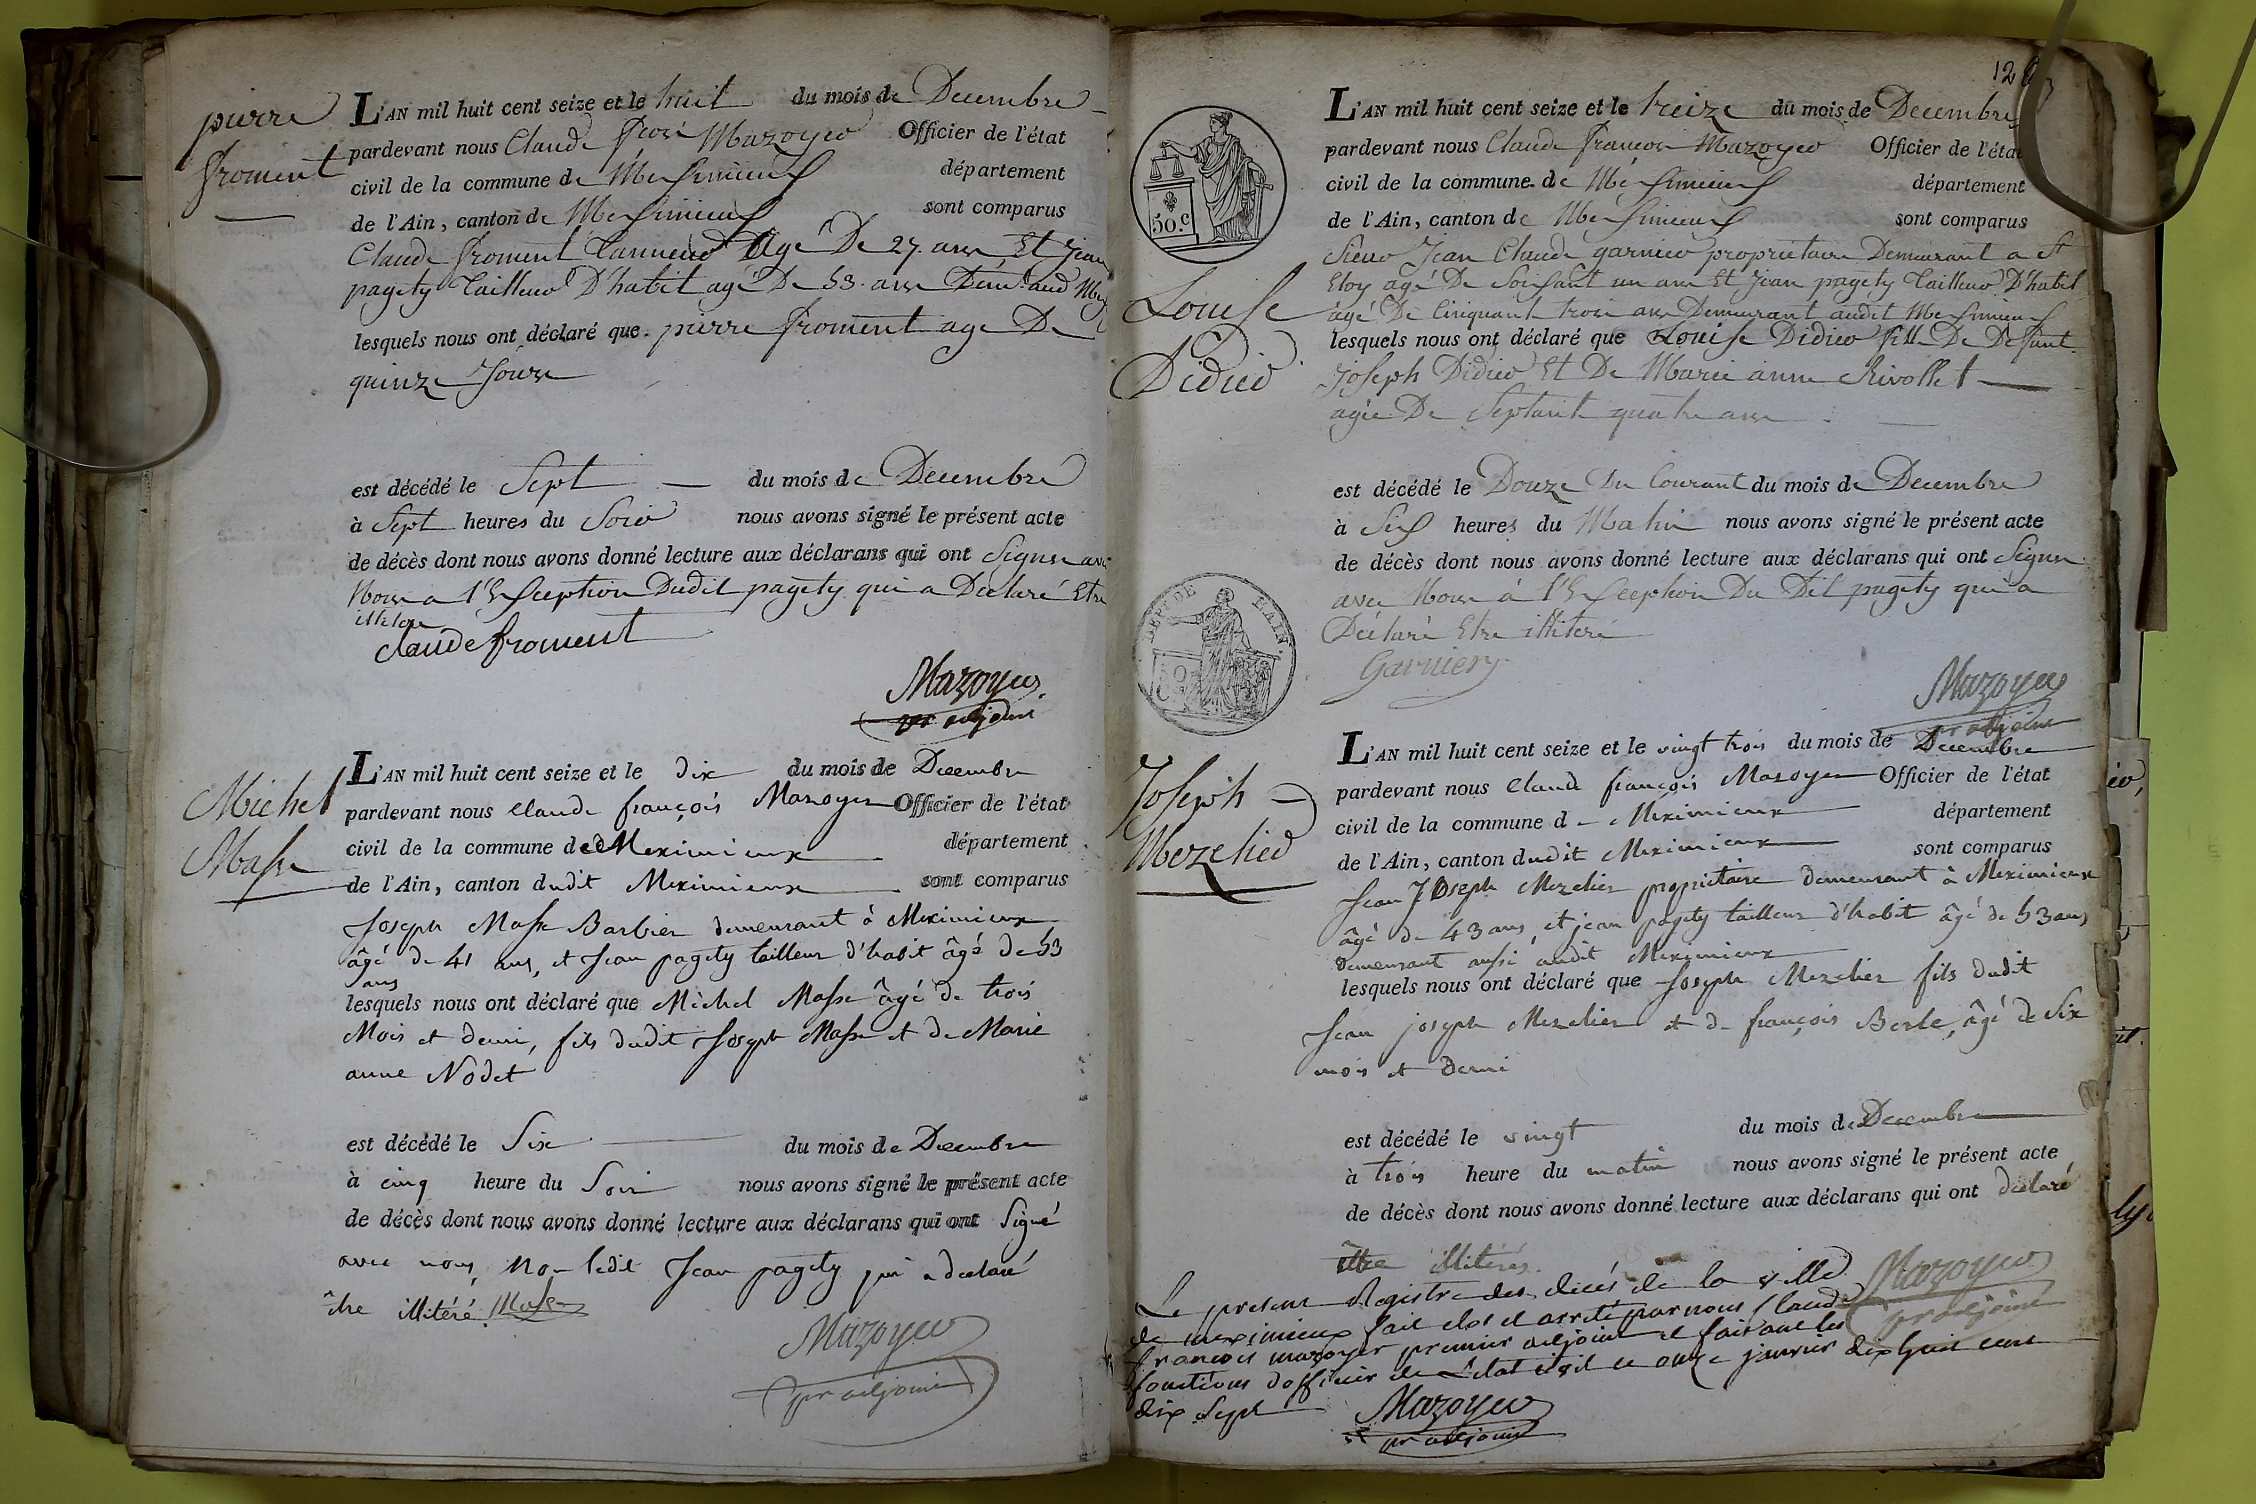 pierre
froment
L'AN mil huit cent seize et le huit du mois de Decembre
pardevant nous Claude fcois Mazoyer Officier de l'état
civil de la commune de Meximieux département
de l'Ain, canton de Meximieux sont comparus
Claude froment Tanneur Agé De 27. ans Et jean
pagety Tailleur D'habit agé De 53. ans Dem.t aud Mex
lesquels nous ont déclaré que pierre froment age De
quinze Jours
est décédé le Sept du mois de Decembre
à Sept heures du Soir nous avons signé le présent acte
de décès dont nous avons donné lecture aux déclarans qui ont Signer avec
Nous a l'Exception Dudit pagety qui a Declaré Etre
claude froment
Mazoyer
pr adjoint
Michel
Masse
L'AN mil huit cent seize et le dix du mois de Decembre
pardevant nous Claude françois Mazoyer Officier de l'état
civil de la commune de Meximieux département
de l'Ain, canton dudit Meximieux sont comparus
Joseph Masse Barbier demeurant à Meximieux
âgé de 41 ans, et Jean pagety tailleur d'habit âgé de 53
ans
lesquels nous ont déclaré que Michel Masse âgé de trois
Mois et demi, fils dudit Joseph Masse et de Marie
anne Nodet
est décédé le Six du mois de Decembre
à cinq heure du Soir nous avons signé le présent acte
de décès dont nous avons donné lecture aux déclarans qui ont Signé
avec nous, Non ledit Jean pagety qui a declaré
être illitéré. Masse
Mazoyer
pr adjoint
12
50.c
Louise
Didier
L'AN mil huit cent seize et le treize du mois de Decembre
pardevant nous Claude francois Mazoyer Officier de l'état
civil de la commune de Meximieux département
de l'Ain, canton de Meximieux sont comparus
Sieur Jean Claude garnier proprietaire Demeurant a St
Eloy agé De Soixant un ans Et Jean pagety Tailleur D'habit
âgé De Cinquant trois ans Demeurant audit Meximieux
lesquels nous ont déclaré que Louise Didier fille De Defunt
Joseph Didier Et De Marie anne Rivollet
agée De Septant quatre ans
est décédé le Douze Du Courant du mois de Decembre
à Six heures du Matin nous avons signé le présent acte
de décès dont nous avons donné lecture aux déclarans qui ont Signer
avec Nous à l'Exception Du Dit pagety qui a
Déclaré Etre illiteré
Garnier
Mazoyer
pr adjoint
Joseph
Mezelier
L'AN mil huit cent seize et le vingt trois du mois de Decembre
pardevant nous Claude françois Mazoyer Officier de l'état
civil de la commune de Meximieux département
de l'Ain, canton dudit Meximieux sont comparus
Jean Joseph Mezelier proprietaire demeurant à Meximieux
âgé de 43 ans, et jean pagety tailleur d'habit âgé de 53 ans
demeurant aussi audit Meximieux
lesquels nous ont déclaré que Joseph Mezelier fils dudit
Jean joseph Mezelier et de françois Berle, âgé de Six
mois et demi
est décédé le vingt du mois de Decembre
à trois heure du matin nous avons signé le présent acte
de décès dont nous avons donné lecture aux déclarans qui ont declaré
être illitérés.
Mazoyer
pr adjoint
Le present Registre des décés de la ville
de meximieux fait clos et arreté par nous Claude
francois mazoyer premier adjoint et faisant les
fonctions d'officier de L'etat civil ce onze janvier dix huit cent
dix Sept
Mazoyer
pr adjoint